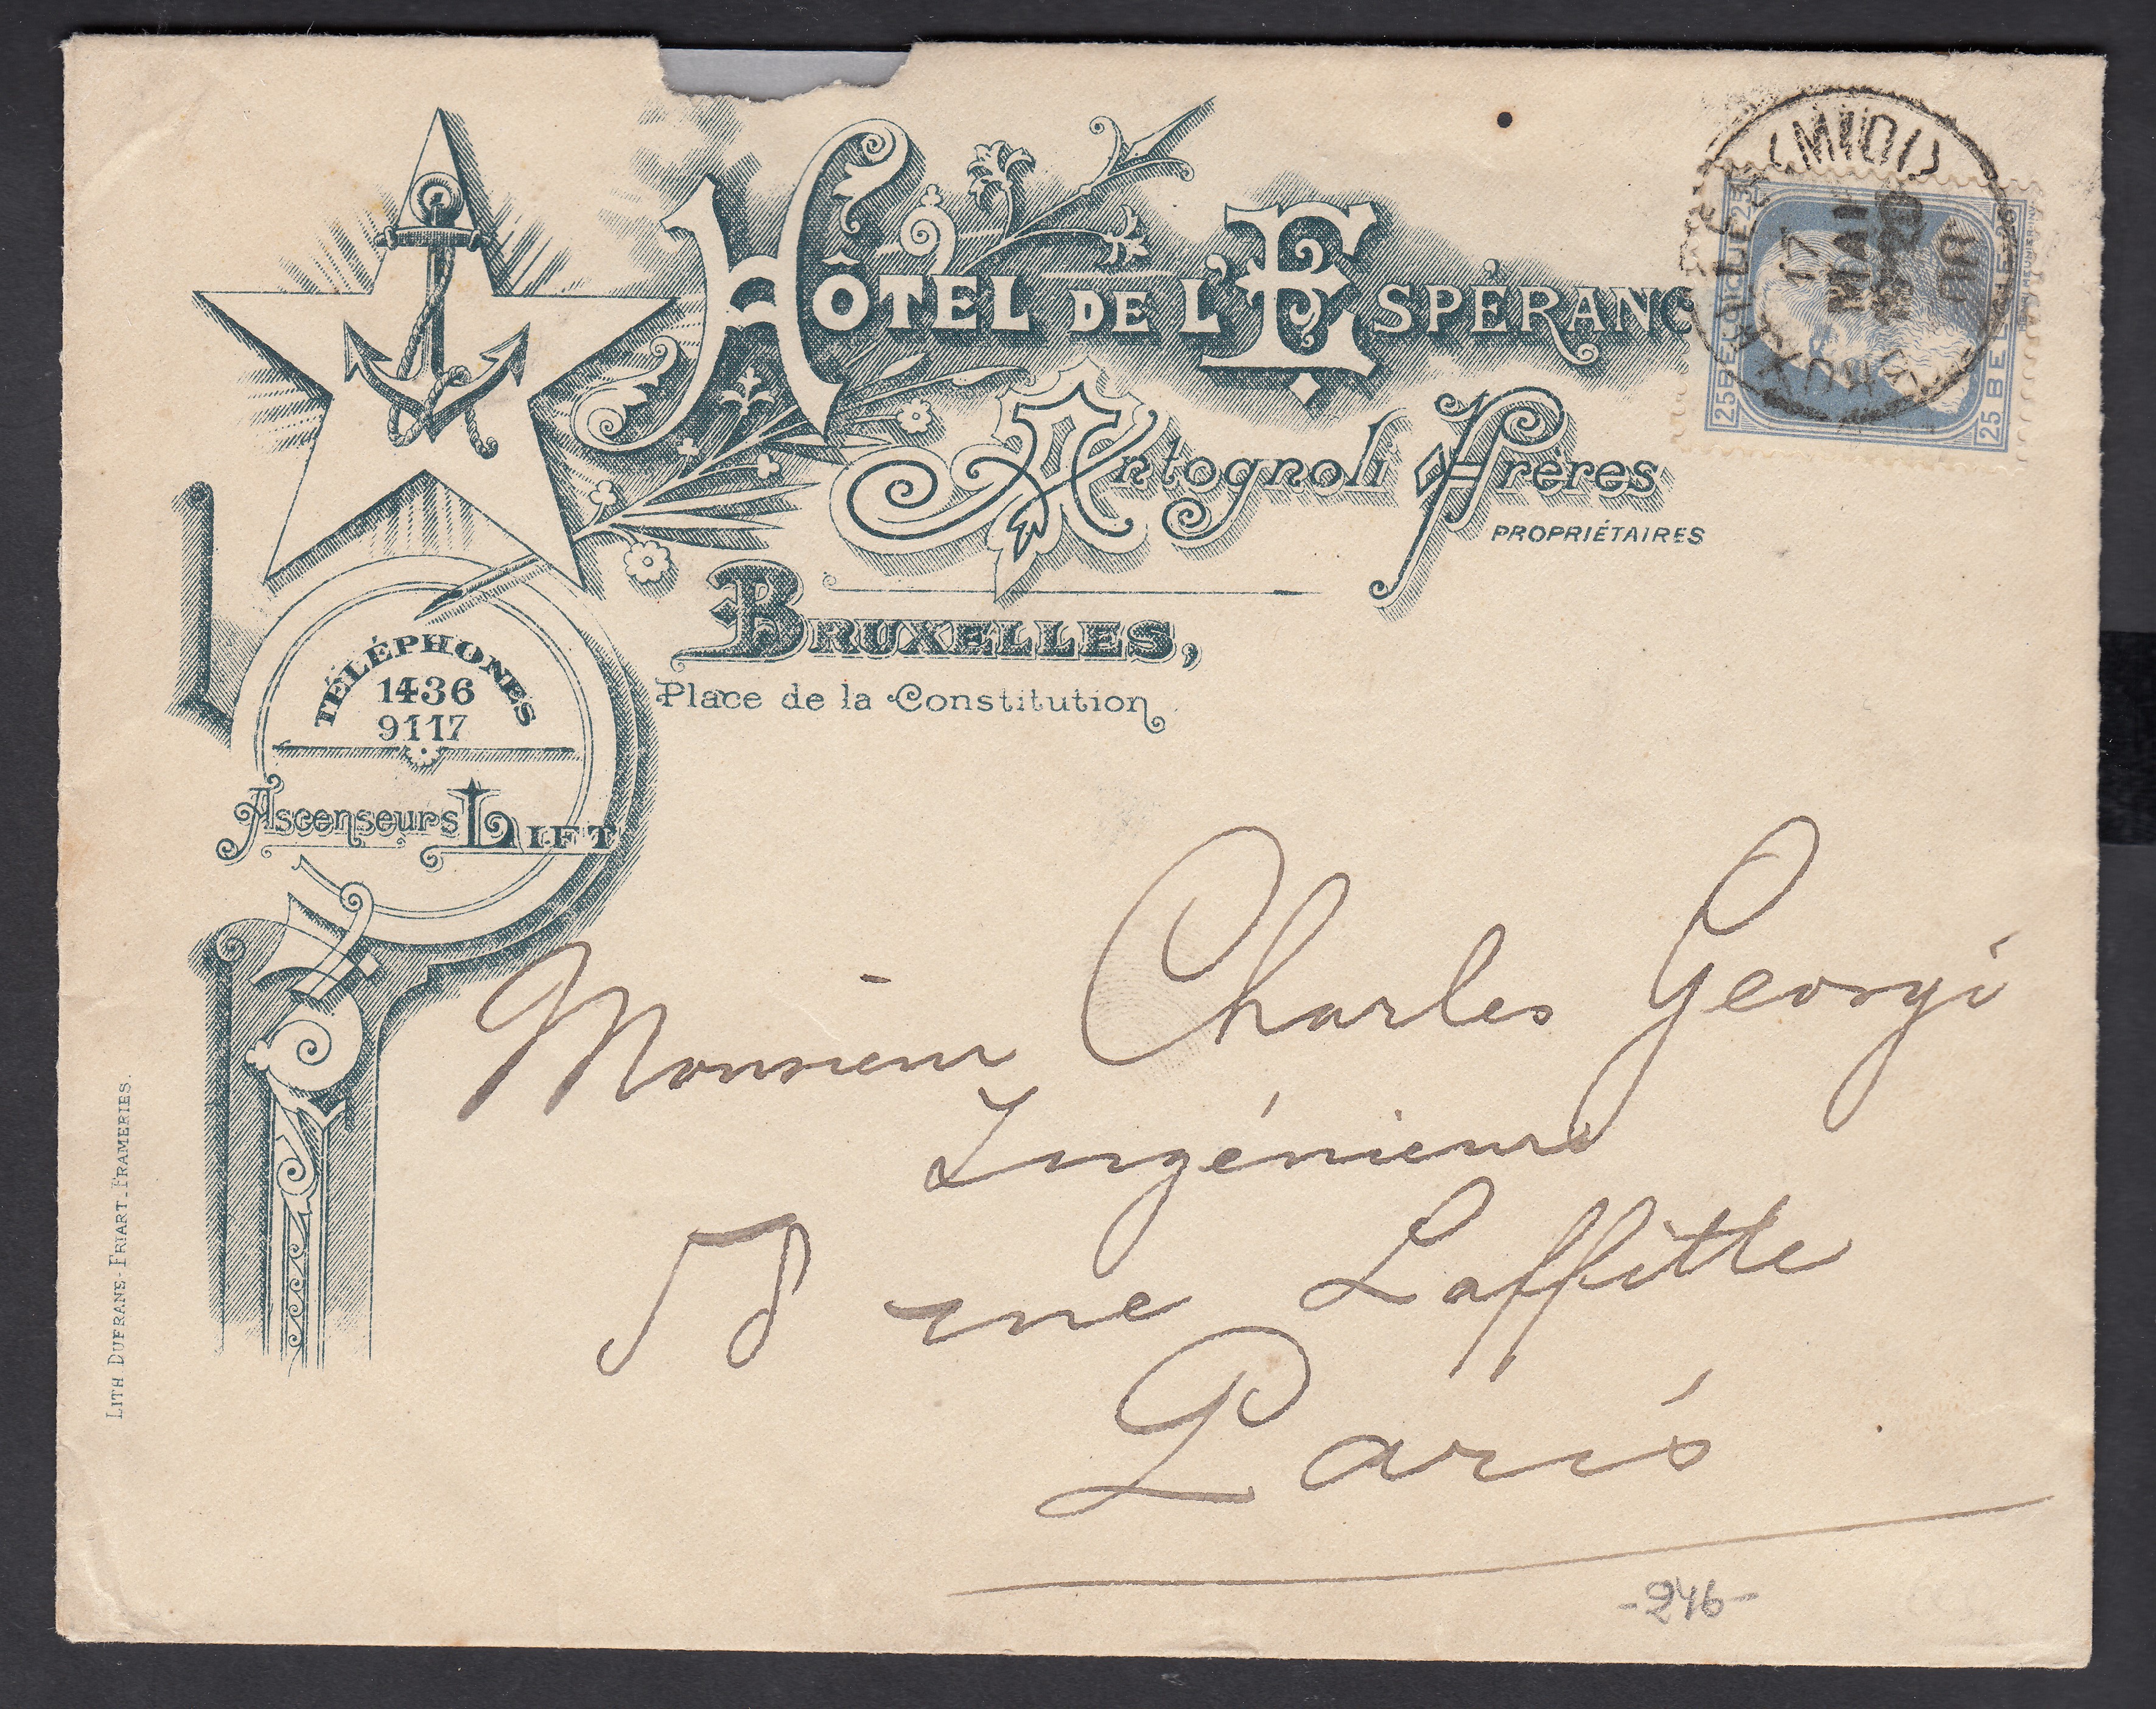 HÔTEL DE L'ESPÉRANC
Antognoli Frères
PROPRIÉTAIRES
BRUXELLES,
Place de la Constitution
TÉLÉPHONES
1436
9117
Ascenseurs LIFT
LITH DUFRANE-FRIART_FRAMERIES.
BRUXELLES
(MIDI)
17
MAI
25 BE
25 BEL
Monsieur Charles Georgi
Ingénieur
58 rue Laffitte
Paris
-246-